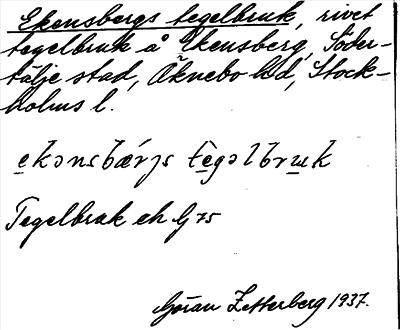 Ekensbergs tegelbruk, rivet
tegelbruk å Ekensberg, Söder-
tälje stad, Öknebo hd, Stock-
holms l.
ekənsbærjs tègəlbrɯk
Tegelbruk eh G 75
Göran Zetterberg 1937.